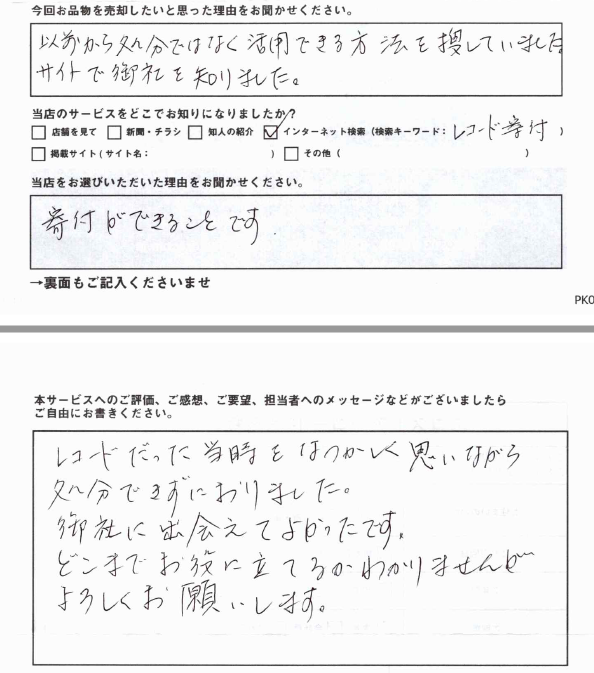 今回お品物を売却したいと思った理由をお聞かせください。
以前から処分ではなく活用できる方法を捜していました
サイトで御社を知りました。
当店のサービスをどこでお知りになりましたか?
□ 店舗を見て □ 新聞・チラシ □ 知人の紹介 ☑ インターネット検索（検索キーワード：レコード寄付 ）
□ 掲載サイト（サイト名： ） □ その他（ ）
当店をお選びいただいた理由をお聞かせください。
寄付ができることです.
→裏面もご記入くださいませ
PK0
本サービスへのご評価、ご感想、ご要望、担当者へのメッセージなどがございましたら
ご自由にお書きください。
レコードだった当時をなつかしく思いながら
処分できずにおりました。
御社に出会えてよかったです。
どこまでお役に立てるかわかりませんが
よろしくお願いします。